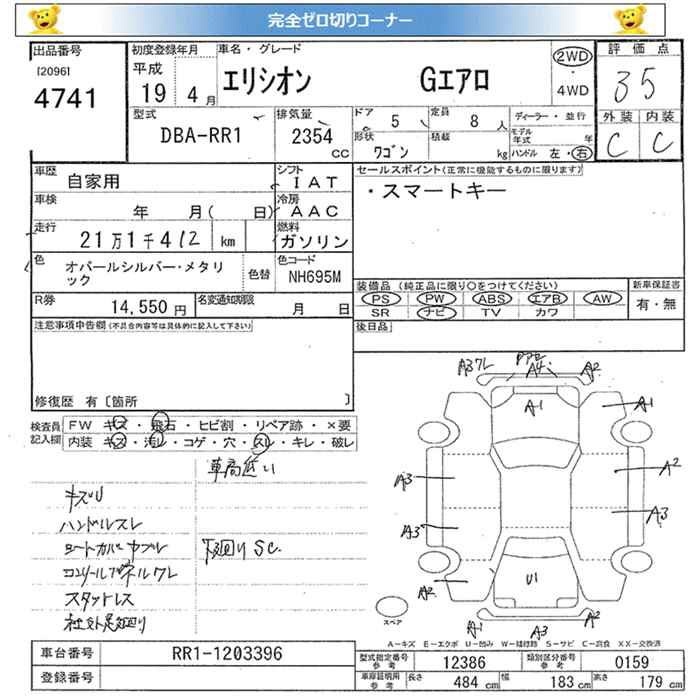 完全ゼロ切りコーナー
出品番号 初度登録年月 車名・グレード 評価点
[2096] 平成 エリシオン Gエアロ 2WD 35
4741 19 4月 ・4WD
型式 排気量 ドア 5 定員 8人 ディーラー・並行 外装 内装
DBA-RR1 2354CC 形状 ワゴン 積載 kg モデル年式 年 C C
ハンドル 左・右
車歴 自家用 シフト IAT セールスポイント(正常に機能するものに限ります)
車検 年 月( 日) 冷房 AAC ・スマートキー
走行 21万1千412 km 燃料 ガソリン
色 オパールシルバー・メタリック 色替 色コード NH695M
装備品(純正品に限り○をつけてください) 新車保証書
PS PW ABS エアB AW 有・無
SR ナビ TV カワ
R券 14,550円 名変通知期限 月 日
後日品
注意事項申告欄(不具合内容等は具体的に記入して下さい)
修復歴 有〔箇所 〕
検査員記入欄 FW キズ・飛石・ヒビ割・リペア跡・×要
内装 キズ・汚レ・コゲ・穴・スレ・キレ・破レ
車高低い
キズU
ハンドルスレ
シートカバーヤブレ 下回りSC.
スタットレス
社外足廻り
A3ワレ A4 A2
A1 A1
A3 A2
A3 A3
A2 U1
A1 A3 A2
スペア
A-キズ E-エクボ U-凹み W-補修跡 S-サビ C-腐食 XX-交換済
車台番号 RR1-1203396 型式指定番号 参考 12386 類別区分番号 参考 0159
登録番号 車庫証明用 参考 長さ 484cm 幅 183cm 高さ 179cm